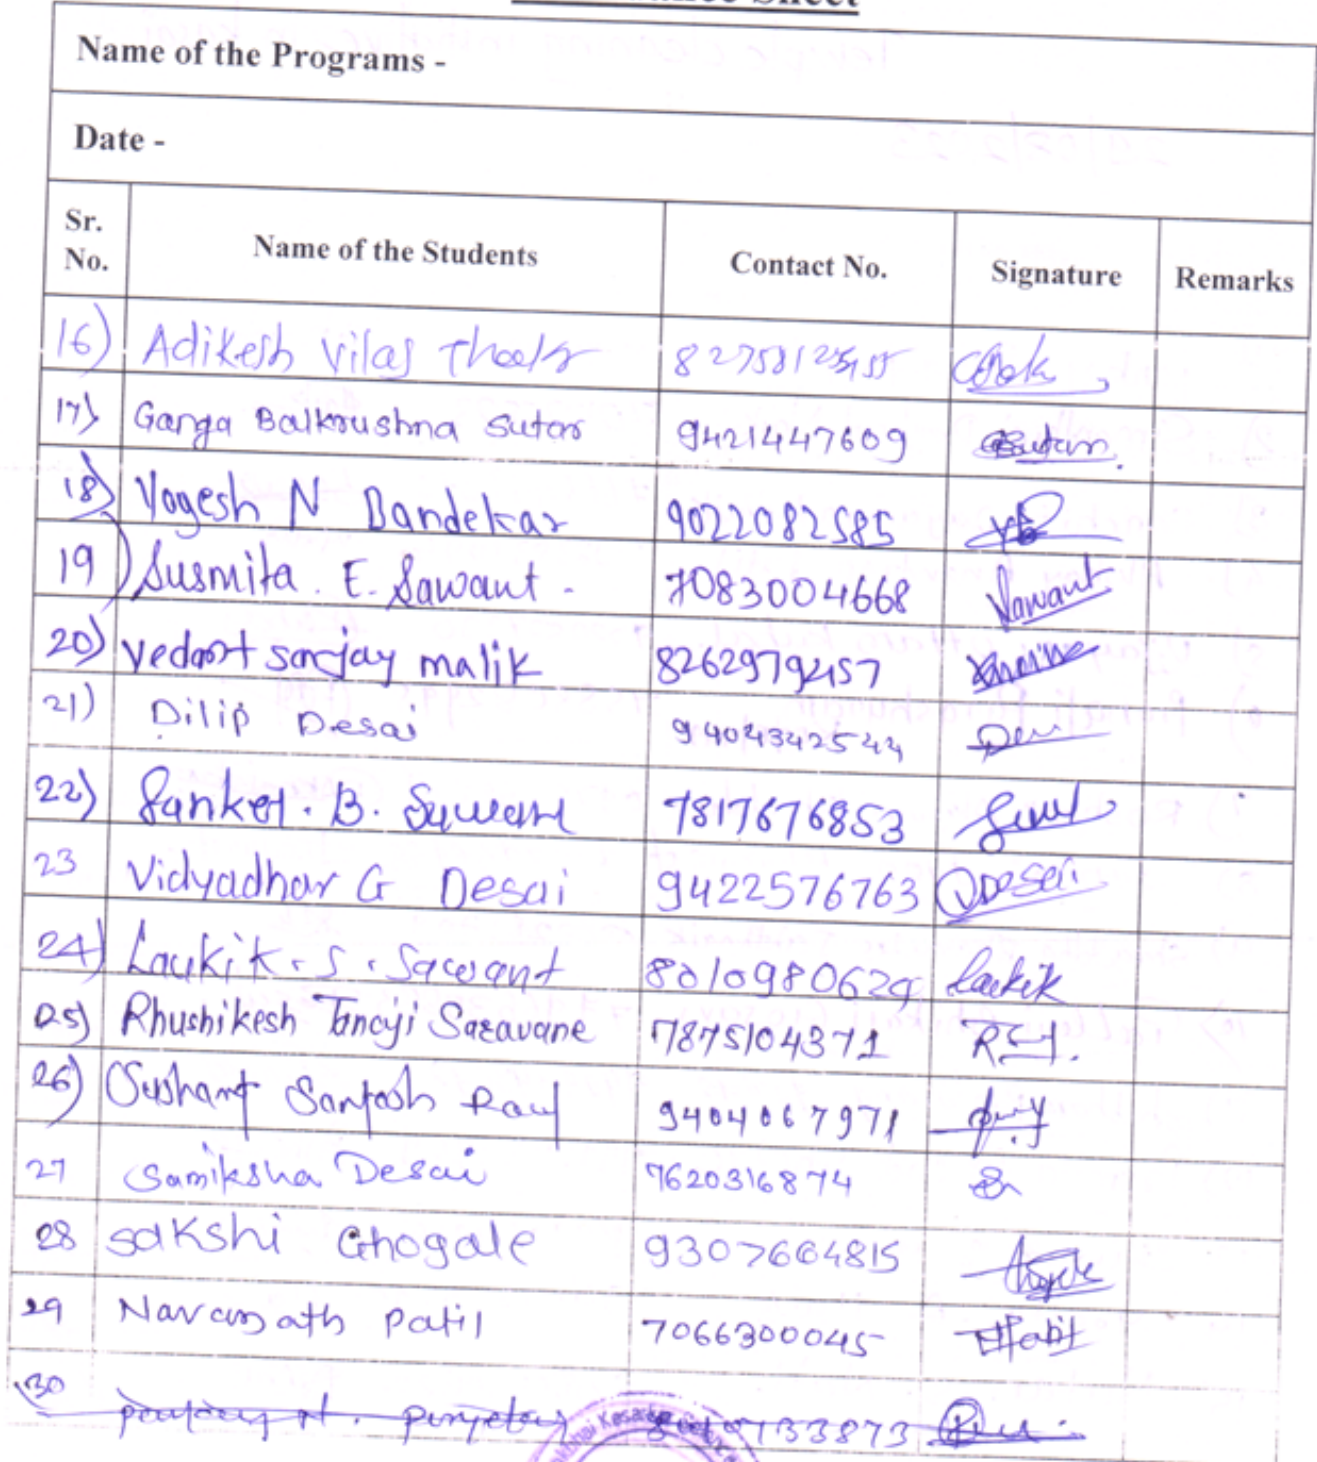 Sheet
Name of the Programs -
Date -
Sr. No. Name of the Students Contact No. Signature Remarks
16) Adikesh Vilas
17) Ganga Balkrushna Sutar 9421447609 GSutar.
18) Yogesh N Dandekar 9022082585
19) Susmita . E. Sawant . 7083004668 Sawant
20) vedant sanjay malik 8262979457
21) Dilip Desai 9404342544
22) Sanket . B. 7817676853
23 Vidyadhar G Desai 9422576763 Desai
24) Laukik . S . Sawant 8010980629 Laukik
25) Rhushikesh Tanaji Saravane 7875104371
26) Sushant Santosh 9404067971
27 Samiksha Desai 7620316874
28 Sakshi Ghogale 9307664815
29 Navanath Patil 7066300045
30